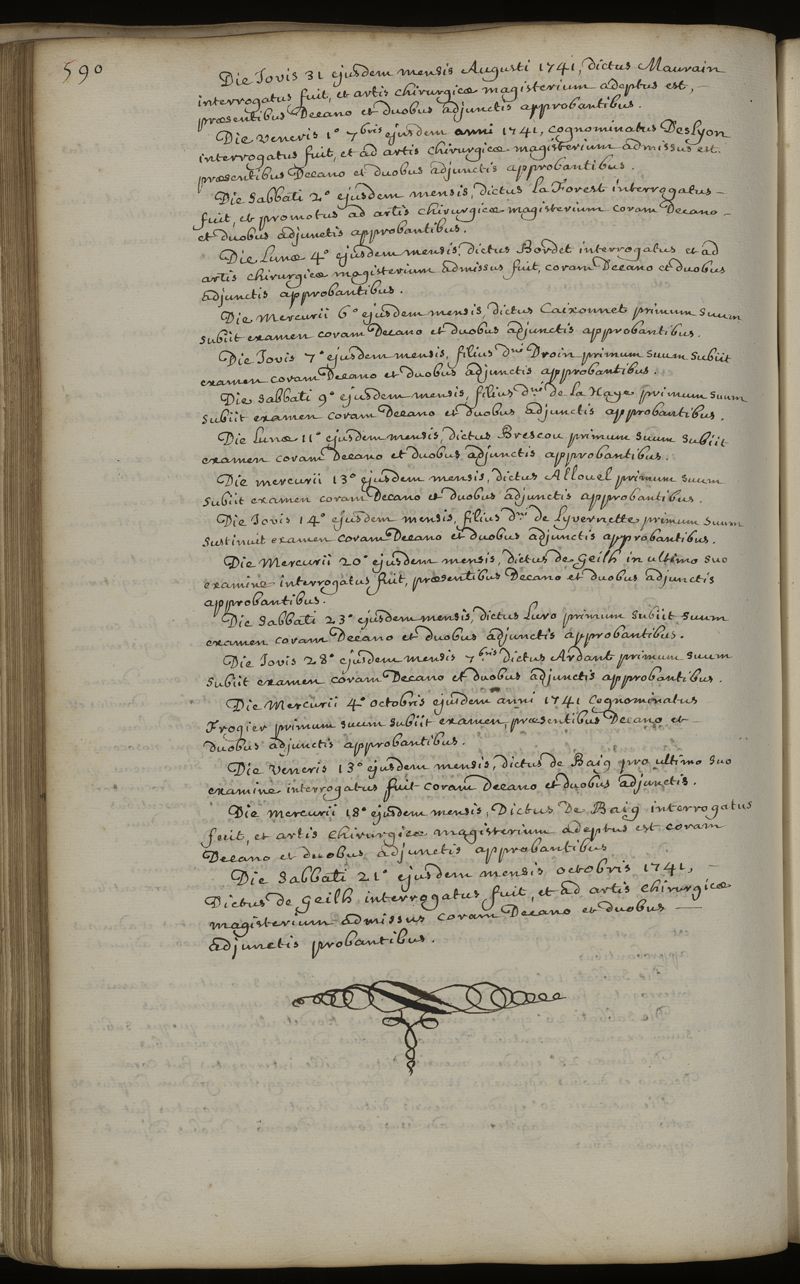 590
Die Jovis 31 ejusdem mensis Augusti 1741, dictus Maurain
interrogatus fuit, et artis chirurgicæ magisterium adeptus est, –
præsentibus Decano et duobus adjunctis approbantibus.
Die Veneris 1° 7bris ejusdem anni 1741, cognominatus Deslyon
interrogatus fuit, et ad artis chirurgicæ magisterium admissus est.
præsentibus Decano et duobus adjunctis approbantibus.
Die Sabbati 2° ejusdem mensis, dictus La Forest interrogatus –
fuit, et promotus ad artis chirurgicæ magisterium coram Decano –
et duobus adjunctis approbantibus.
Die Lunæ 4° ejusdem mensis, dictus Bordet interrogatus et ad
artis chirurgicæ magisterium admissus fuit, coram Decano et duobus
adjunctis approbantibus.
Die Mercurii 6° ejusdem mensis, dictus Caixonnet primum suum
subiit examen coram Decano et duobus adjunctis approbantibus.
Die Jovis 7° ejusdem mensis, filius dni Droin primum suum subiit
examen coram Decano et duobus adjunctis approbantibus.
Die Sabbati 9° ejusdem mensis, filius dni de La Haye primum suum
subiit examen coram Decano et duobus adjunctis approbantibus.
Die Lunæ 11° ejusdem mensis, dictus Brescou primum suum subiit
examen coram Decano et duobus adjunctis approbantibus.
Die mercurii 13° ejusdem mensis, dictus Allouel primum suum
subiit examen coram Decano et duobus adjunctis approbantibus.
Die Jovis 14° ejusdem mensis, filius dni de Lyvernette primum suum
sustinuit examen coram Decano et duobus adjunctis approbantibus.
Die Mercurii 20° ejusdem mensis, dictus de Geilh in ultimo suo
examine interrogatus fuit, præsentibus Decano et duobus adjunctis
approbantibus.
Die Sabbati 23° ejusdem mensis, dictus Luro primum subiit suum
examen coram Decano et duobus adjunctis approbantibus.
Die Jovis 28° ejusdem mensis 7bris dictus Ardant primum suum
subiit examen coram Decano et duobus adjunctis approbantibus.
Die Mercurii 4° octobris ejusdem anni 1741 cognominatus
Frogier primum suum subiit examen, præsentibus Decano et –
duobus adjunctis approbantibus.
Die Veneris 13° ejusdem mensis, dictus de Baig pro ultimo suo
examine interrogatus fuit coram Decano et duobus adjunctis.
Die Mercurii 18° ejusdem mensis, Dictus De Baig interrogatus
fuit, et artis chirurgicæ magisterium adeptus est coram
Decano et duobus adjunctis approbantibus
Die Sabbati 21° ejusdem mensis octobris 1741, –
Dictus de Geilh interrogatus fuit, et ad artis chirurgicæ
magisterium admissus coram Decano et duobus —
adjunctis probantibus.